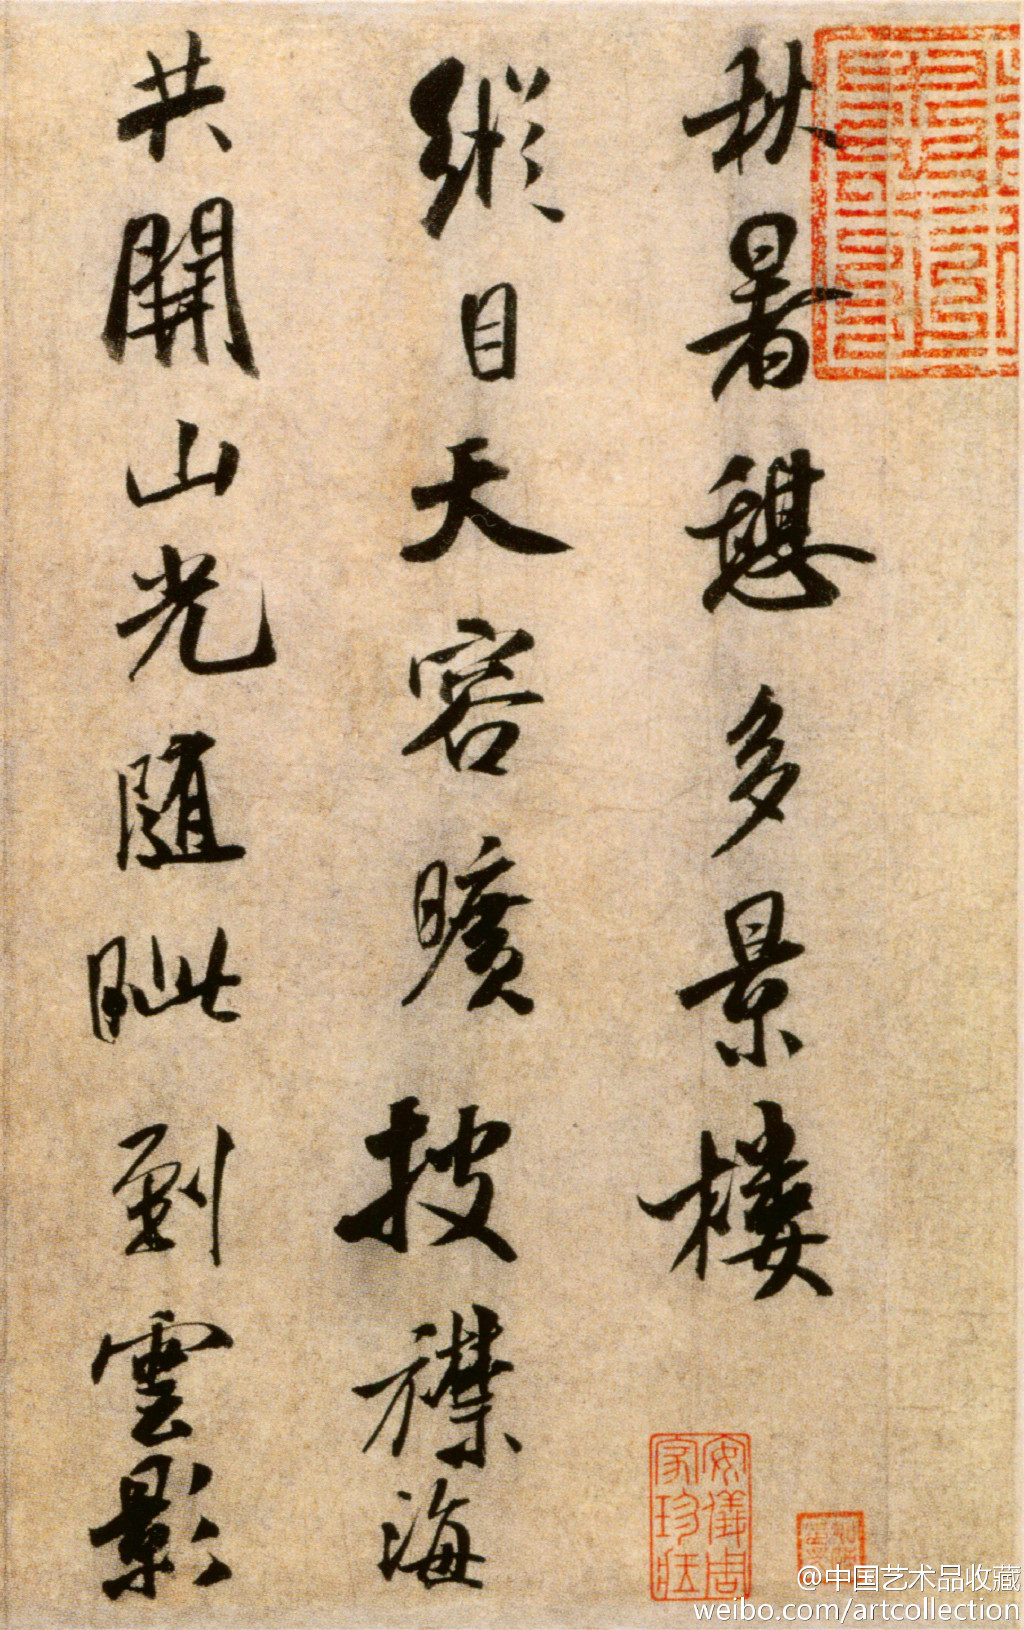 秋暑憩多景樓
縱目天容曠披襟海
共開山光隨眦到雲影
安儀周家珍藏
@中国艺术品收藏
weibo.com/artcollection